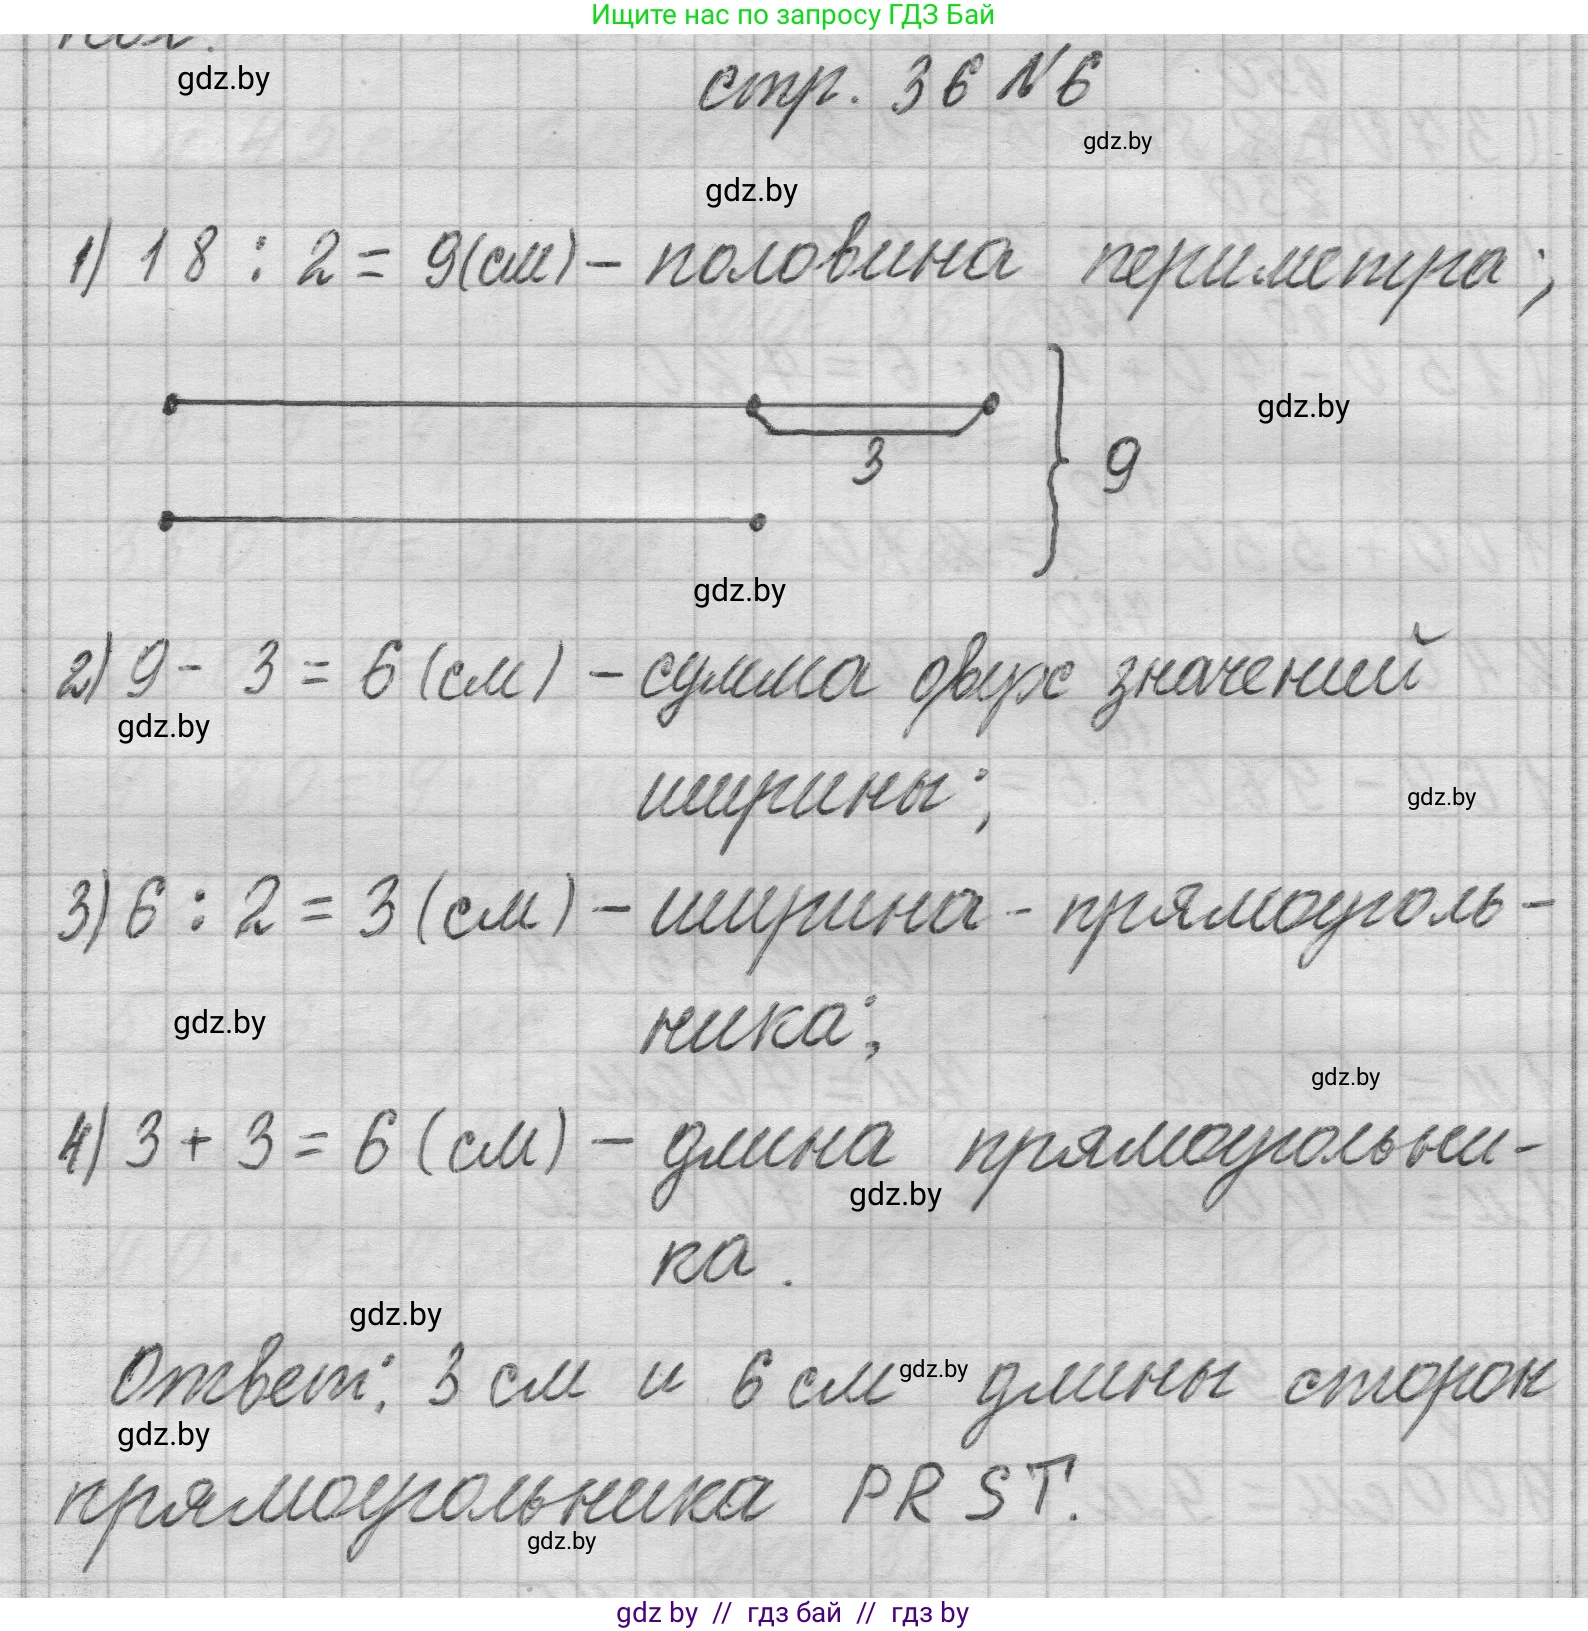 Ищите нас по запросу ГДЗ Бай
gdz.by
стр. 36 №6
gdz.by
gdz.by
1) 18 : 2 = 9(см) – половина периметра;
gdz.by
3
9
gdz.by
2) 9 - 3 = 6 (см) – сумма двух значений
gdz.by
ширины;
gdz.by
3) 6 : 2 = 3 (см) – ширина - прямоуголь-
gdz.by
ника;
gdz.by
4) 3 + 3 = 6 (см) – длина прямоугольни-
gdz.by
ка.
gdz.by
Ответ: 3 см и 6 см длины сторон
gdz.by
gdz.by
прямоугольника PRST.
gdz.by
gdz by // гдз бай // гдз by